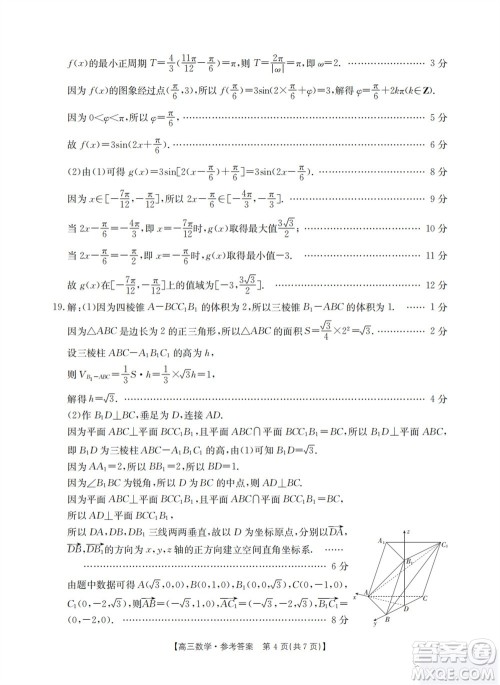 f(x)的最小正周期 T=4/3(11π/12−π/6)=π，则 T=2π/|ω|=π，即 ω=2. 3 分
因为 f(x)的图象经过点(π/6,3)，所以 f(π/6)=3sin(2×π/6+φ)=3，解得 φ=π/6+2kπ(k∈Z)
因为 0<φ<π，所以 φ=π/6. 5 分
故 f(x)=3sin(2x+π/6). 6 分
(2)由(1)可得 g(x)=3sin[2(x−π/6)+π/6]=3sin(2x−π/6). 8 分
因为 x∈[−7π/12,−π/12]，所以 2x−π/6∈[−4π/3,−π/3]. 9 分
当 2x−π/6=−4π/3，即 x=−7π/12时，g(x)取得最大值3√3/2； 10 分
当 2x−π/6=−π/2，即 x=−π/6时，g(x)取得最小值−3. 11 分
故 g(x)在[−7π/12,−π/12]上的值域为[−3,3√3/2]. 12 分
19.解：(1)因为四棱锥 A−BCC₁B₁ 的体积为 2，所以三棱锥 B₁−ABC 的体积为 1. 1 分
因为△ABC 是边长为 2 的正三角形，所以△ABC 的面积 S=√3/4×2²=√3. 2 分
设三棱柱 ABC−A₁B₁C₁ 的高为 h，
则 V_{B₁−ABC}=1/3 S·h=1/3×√3h=1，
解得 h=√3. 4 分
(2)作 B₁D⊥BC，垂足为 D，连接 AD.
因为平面 ABC⊥平面 BCC₁B₁，且平面 ABC∩平面 BCC₁B₁=BC，所以 B₁D⊥平面 ABC，
即 B₁D 为三棱柱 ABC−A₁B₁C₁ 的高，所以 B₁D=√3.
因为 AA₁=2，所以 BB₁=2，所以 BD=1.
因为∠B₁BC 为锐角，所以 D 为 BC 的中点，所以 AD⊥BC.
因为平面 ABC⊥平面 BCC₁B₁，且平面 ABC∩平面 BCC₁B₁=BC，所以 AD⊥平面 BCC₁B₁，
所以 DA，DB，DB₁ 三线两两垂直，故以 D 为坐标原点，分别以 DA，
DB，DB₁的方向为 x，y，z 轴的正方向建立空间直角坐标系.
6 分
由题中数据可得 A(√3,0,0)，B(0,1,0)，B₁(0,0,√3)，
C₁(0,−2,√3)，则AB=(−√3,1,0)，AC₁=(−√3,−2,√3)，BC₁=
(0,−3,√3). 8 分
z
A₁
C₁
B₁
A
C
D
B
x
y
【高三数学·参考答案 第 4 页(共 7 页)】